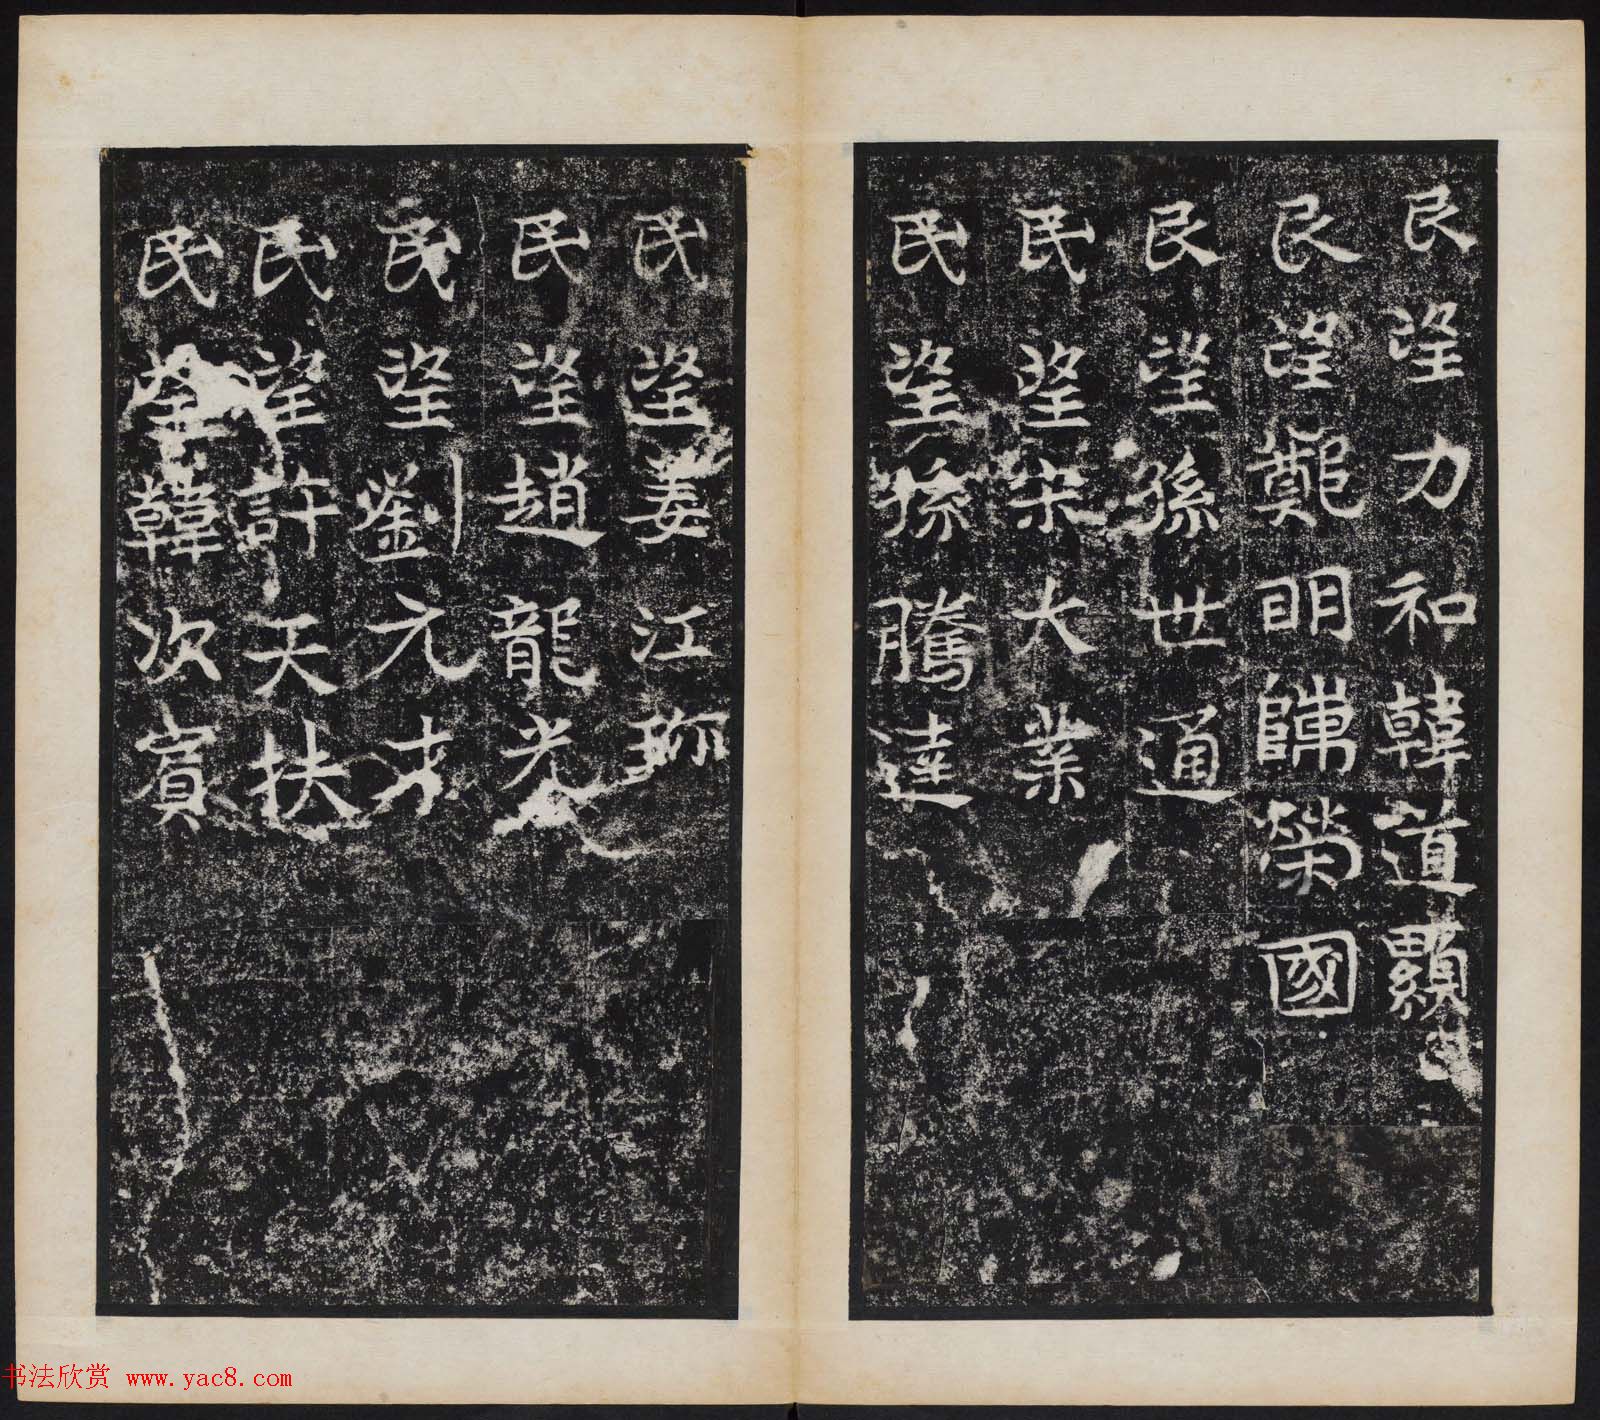 民望力和韓道顯
民望鄭明歸榮國
民望孫世通
民望宋大業
民望孫騰達
民望姜江珎
民望趙龍光
民望劉元才
民望許天扶
民望韓次賓
书法欣赏 www.yac8.com